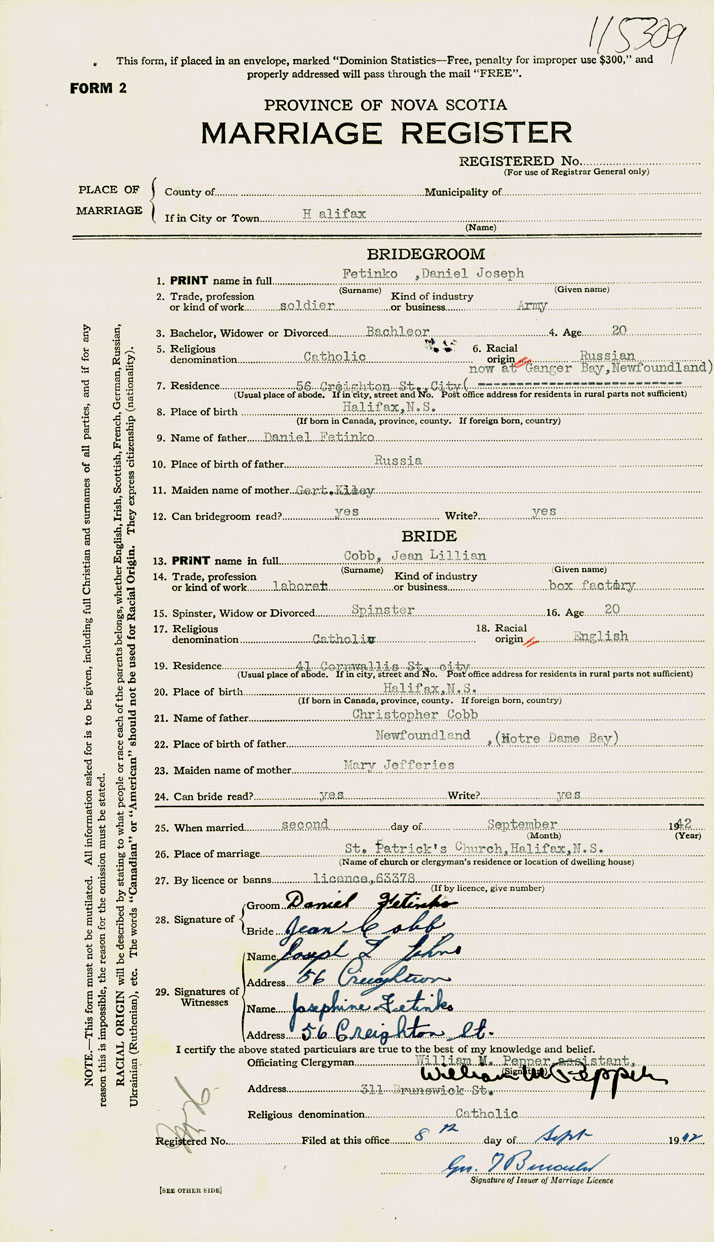 115309
This form, if placed in an envelope, marked "Dominion Statistics—Free, penalty for improper use $300," and
properly addressed will pass through the mail "FREE".
FORM 2
PROVINCE OF NOVA SCOTIA
MARRIAGE REGISTER
REGISTERED No.
(For use of Registrar General only)
PLACE OF MARRIAGE
County of Municipality of
If in City or Town H alifax
(Name)
BRIDEGROOM
1. PRINT name in full Fetinko ,Daniel Joseph
(Surname) (Given name)
2. Trade, profession or kind of work soldier Kind of industry or business Army
3. Bachelor, Widower or Divorced Bachleor 4. Age 20
5. Religious denomination Catholic 6. Racial origin Russian
now at Ganger Bay,Newfoundland)
7. Residence 56 Creighton St.,City( -------------------------
(Usual place of abode. If in city, street and No. Post office address for residents in rural parts not sufficient)
8. Place of birth Halifax,N.S.
(If born in Canada, province, county. If foreign born, country)
9. Name of father Daniel Fetinko
10. Place of birth of father Russia
11. Maiden name of mother Gert.Kiley
12. Can bridegroom read? yes Write? yes
BRIDE
13. PRINT name in full Cobb, Jean Lillian
(Surname) (Given name)
14. Trade, profession or kind of work Kind of industry or business box factory
15. Spinster, Widow or Divorced Spinster 16. Age 20
17. Religious denomination Catholic 18. Racial origin English
19. Residence 41 Cornwallis St. city
(Usual place of abode. If in city, street and No. Post office address for residents in rural parts not sufficient)
20. Place of birth Halifax,N.S.
(If born in Canada, province, county. If foreign born, country)
21. Name of father Christopher Cobb
22. Place of birth of father Newfoundland ,(Notre Dame Bay)
23. Maiden name of mother Mary Jefferies
24. Can bride read? yes Write? yes
25. When married second day of September 1942
(Month) (Year)
26. Place of marriage St. Patrick's Church,Halifax,N.S.
(Name of church or clergyman's residence or location of dwelling house)
27. By licence or banns licence,63378
(If by licence, give number)
28. Signature of
Groom Daniel Fetinko
Bride Jean Cobb
29. Signatures of Witnesses
Name Joseph L Johns
Address 56 Creighton
Name Josephine Fetinko
Address 56 Creighton St.
I certify the above stated particulars are true to the best of my knowledge and belief.
Officiating Clergyman William M. Pepper assistant,
(Signature) William M Pepper
Address 311 Brunswick St.
Religious denomination Catholic
Registered No. Filed at this office 8th day of Sept 1942
Signature of Issuer of Marriage Licence
[SEE OTHER SIDE]
NOTE.—This form must not be mutilated. All information asked for is to be given, including full Christian and surnames of all parties, and if for any
reason this is impossible, the reason for the omission must be stated.
RACIAL ORIGIN will be described by stating to what people or race each of the parents belongs, whether English, Irish, Scottish, French, German, Russian,
Ukrainian (Ruthenian), etc. The words "Canadian" or "American" should not be used for Racial Origin. They express citizenship (nationality).